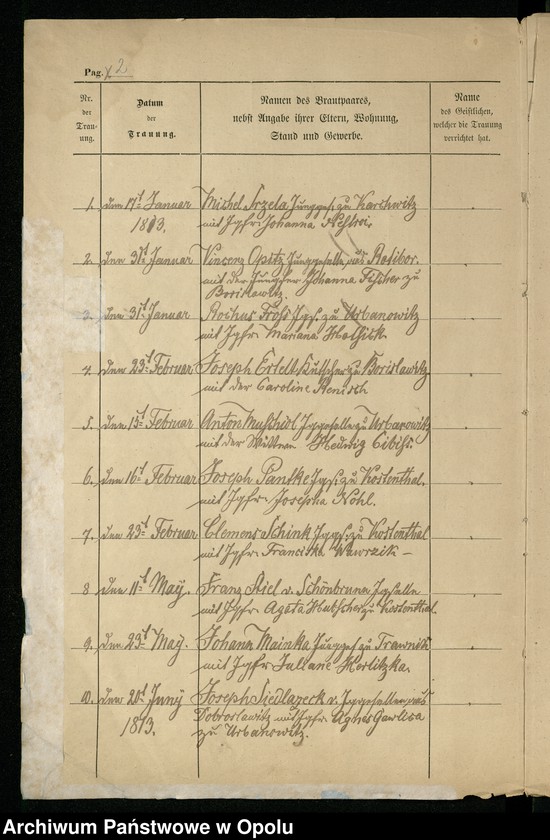 Pag. 2
Nr. der Trau- ung.
Datum der Trauung.
Namen des Brautpaares, nebst Angabe ihrer Eltern, Wohnung, Stand und Gewerbe.
Name des Geistlichen, welcher die Trauung verrichtet hat.
1. den 17t Januar 1813.
Michel Srzela Junggs. zu Karchwitz
mit Jgfr: Johanna
2. den 31t Januar
Vincenz Opitz Junggeselle aus Ratibor
mit der Jungfer Johanna Fischer zu
Borislawitz.
3. den 31t Januar
Rochus Jgs. zu Urbanowitz
mit Jgfr. Mariana
4. den 23t Februar
Joseph Ertelt Kutscher zu Borislawitz
mit der Caroline Kenisch
5. den 15t Februar
Anton Jggeselle zu Urbanowitz
mit der Wittwe Hedwig
6. den 16t Februar
Joseph Pantke Jgs. zu Kostenthal.
mit Jgfr. Josepha Nohl.
7. den 23t Februar
Clemens Schink Jggs. zu Kostenthal
mit Jgfr. Franciska Wawrzik –
8 den 11t May.
Franz Kiel v. Schönbrunn Jgselle
mit Jgfr. Agata Hubscher zu Kostenthal.
9. den 23t May.
Johann Mainka Junggs. zu Trawnik
mit Jgfr. Juliane Herlitzka.
10. den 20t Juny 1813.
Joseph Siedlazeck v. Jggesellen aus
Dobroslawitz mit Jgfr. Agnes Gawlica
zu Urbanowitz.
Archiwum Państwowe w Opolu